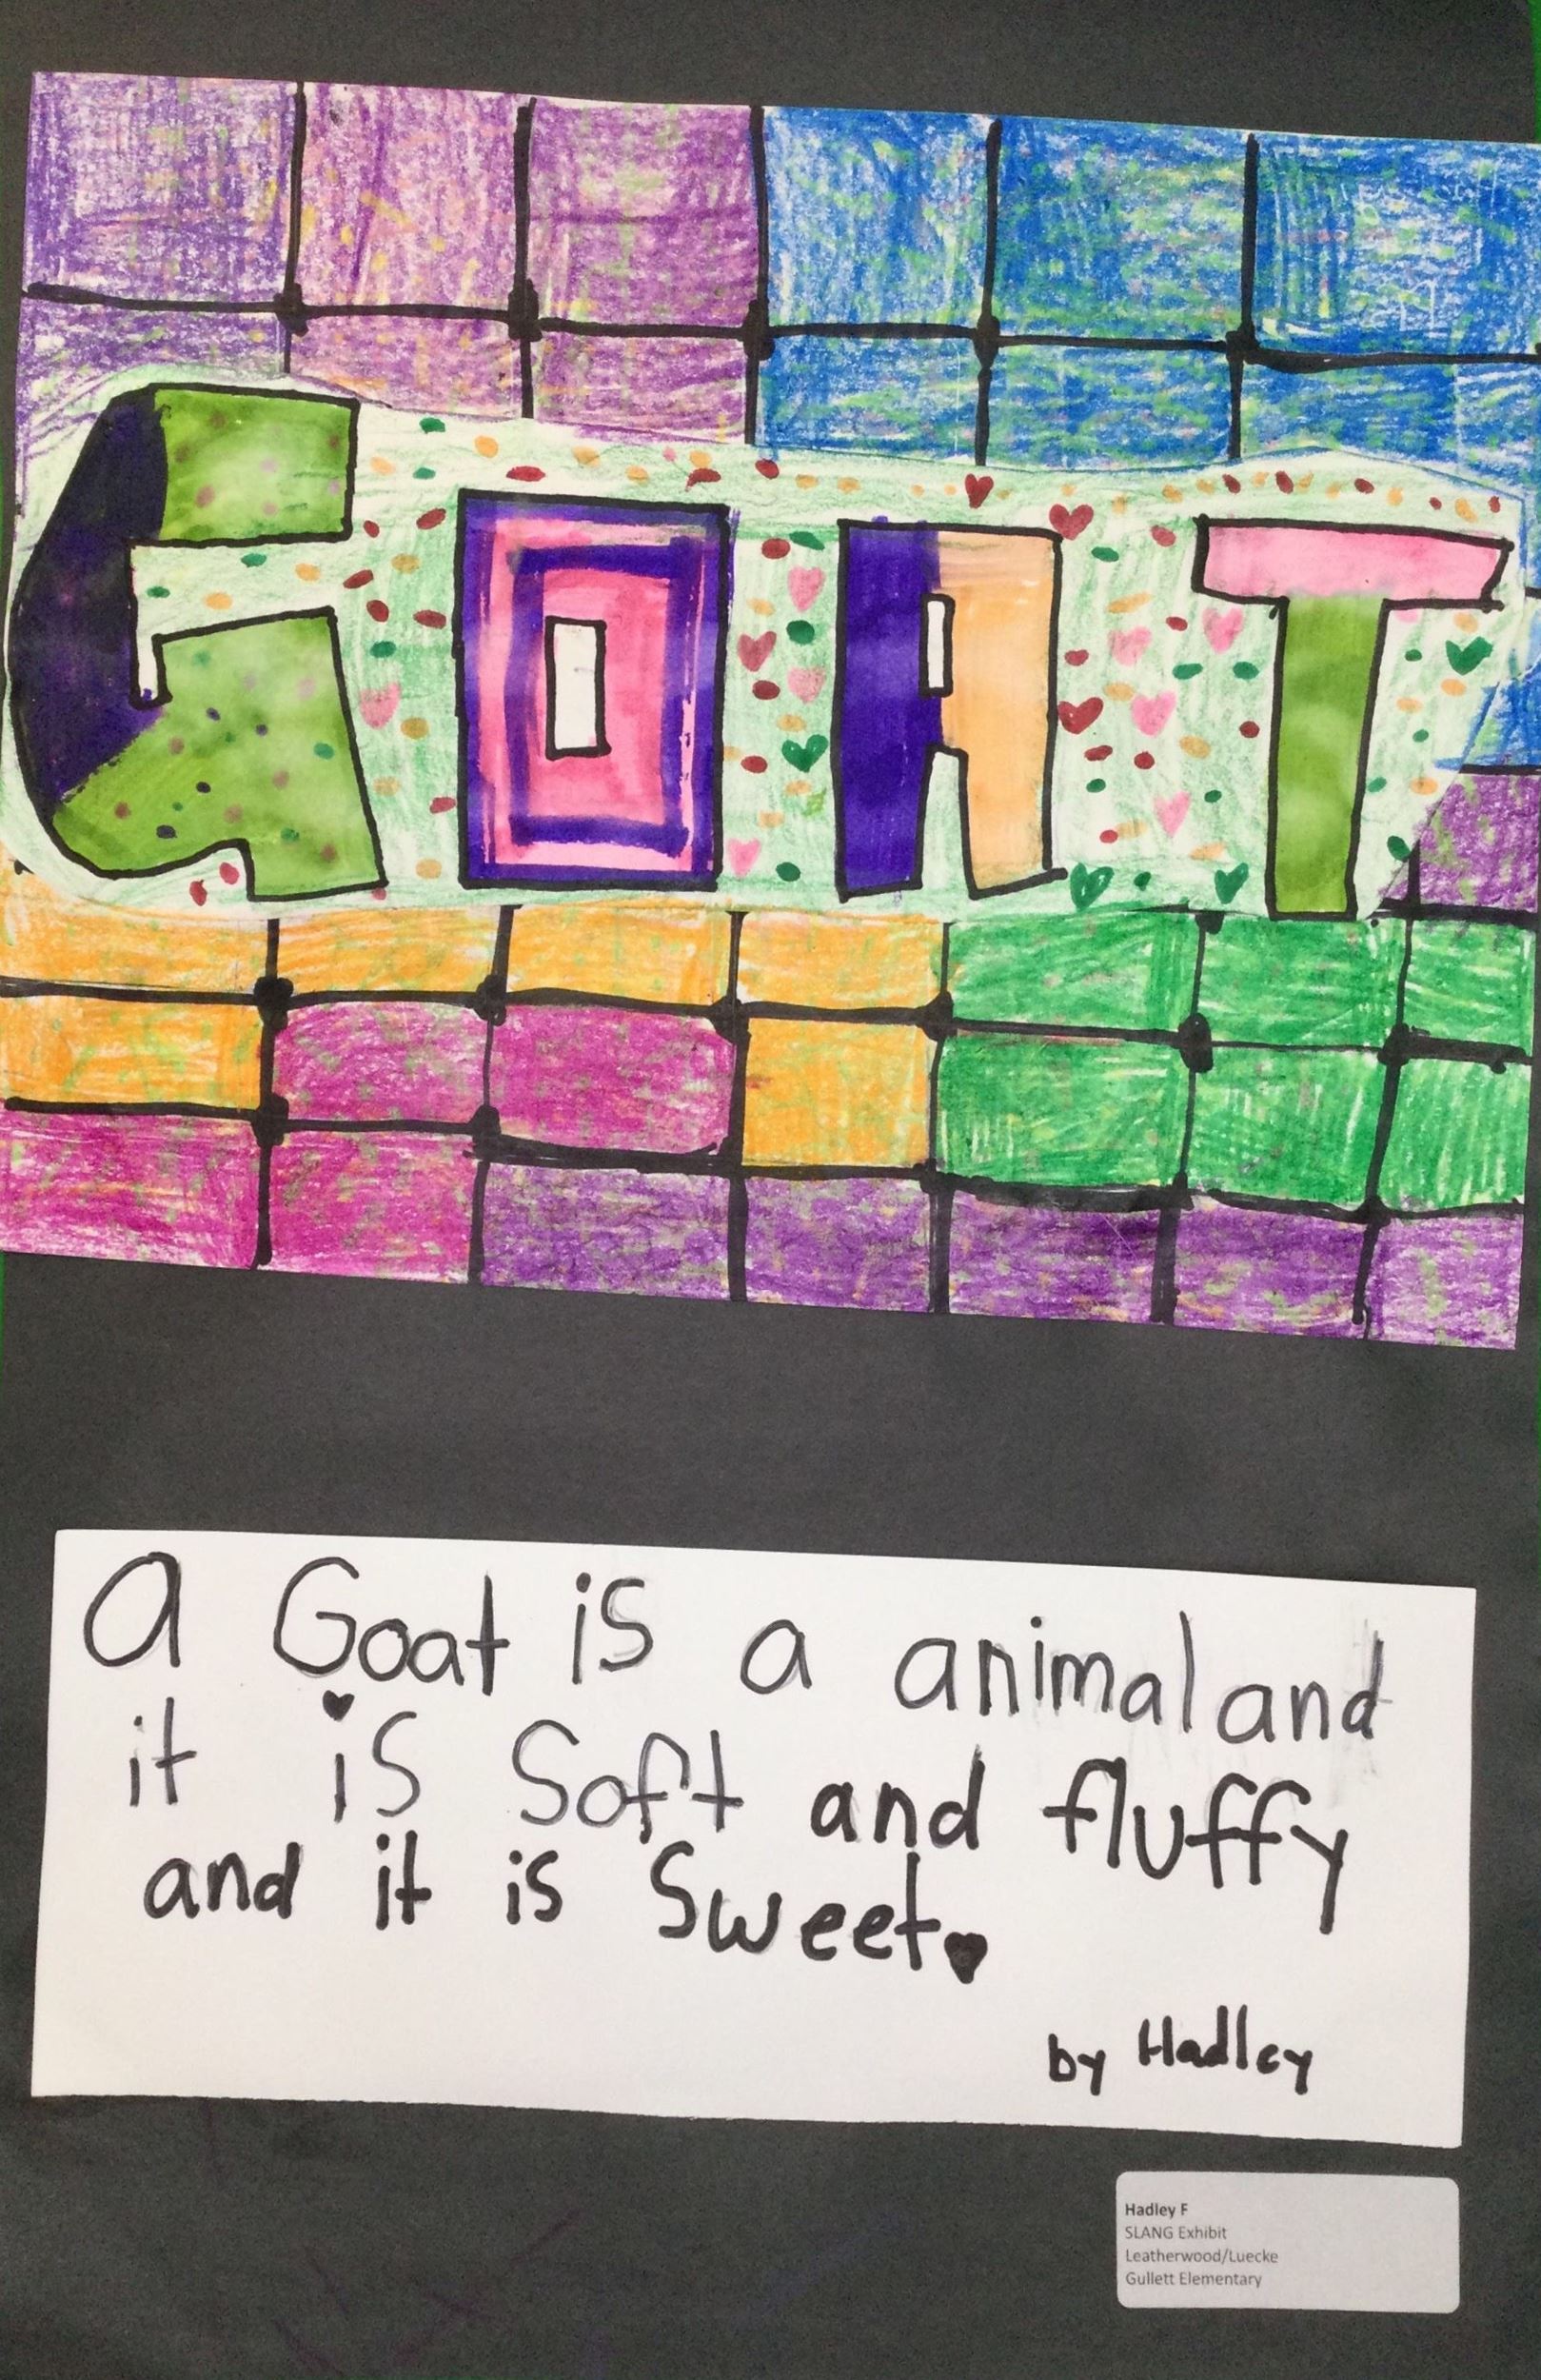 GOAT
A Goat is a animal and
it is Soft and fluffy
and it is Sweet.
by Hadley
Hadley F
SLANG Exhibit
Leatherwood/Luecke
Gullett Elementary